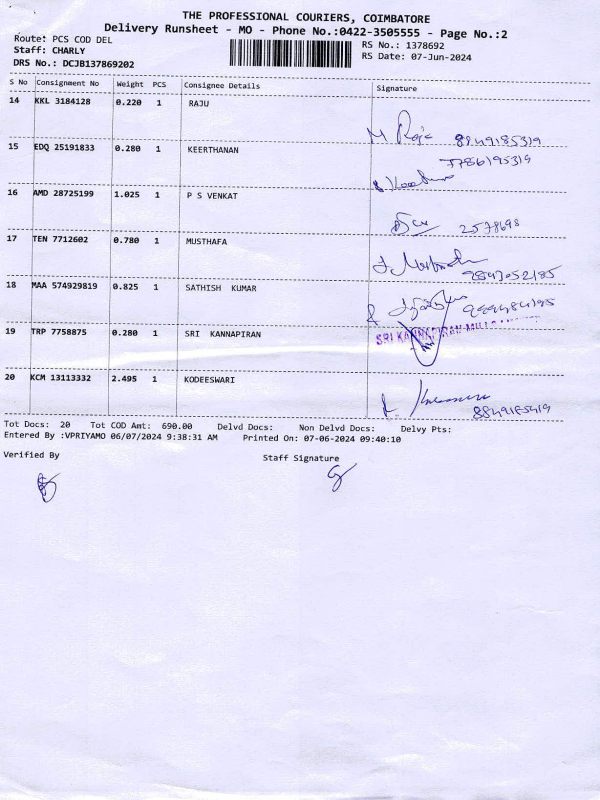 THE PROFESSIONAL COURIERS, COIMBATORE
Delivery Runsheet - MO - Phone No.:0422-3505555 - Page No.:2
Route: PCS COD DEL
RS No.: 1378692
Staff: CHARLY
RS Date: 07-Jun-2024
DRS No.: DCJB137869202
S No Consignment No Weight PCS Consignee Details Signature
14 KKL 3184128 0.220 1 RAJU
M Raja 8849185319
15 EDQ 25191833 0.280 1 KEERTHANAN
7786195319
16 AMD 28725199 1.025 1 P S VENKAT
2578698
17 TEN 7712602 0.780 1 MUSTHAFA
9847052185
18 MAA 574929819 0.825 1 SATHISH KUMAR
19 TRP 7758875 0.280 1 SRI KANNAPIRAN
SRI KANNAPIRAN MILLS
20 KCM 13113332 2.495 1 KODEESWARI
8849185419
Tot Docs: 20 Tot COD Amt: 690.00 Delvd Docs: Non Delvd Docs: Delvy Pts:
Entered By :VPRIYAMO 06/07/2024 9:38:31 AM Printed On: 07-06-2024 09:40:10
Verified By Staff Signature